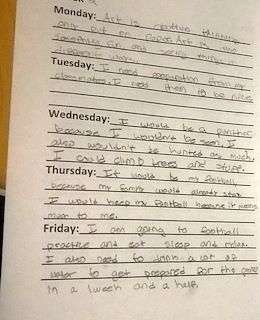 Monday: Art is creative thinking
only put on paper. Art is also
something fun, and seeing things in
different ways.
Tuesday: I need cooperation from my
classmates. I need them to be nice.
Wednesday: I would be a panther
because I wouldn't be seen. I
also wouldn't be hunted as much.
I could climb trees and stuff.
Thursday: It would be my football,
because my family would already stay.
I would keep my football because it means
much to me.
Friday: I am going to football
practice and eat sleep and relax.
I also need to drink a lot of
water to get prepared for the game
in a week and a half.